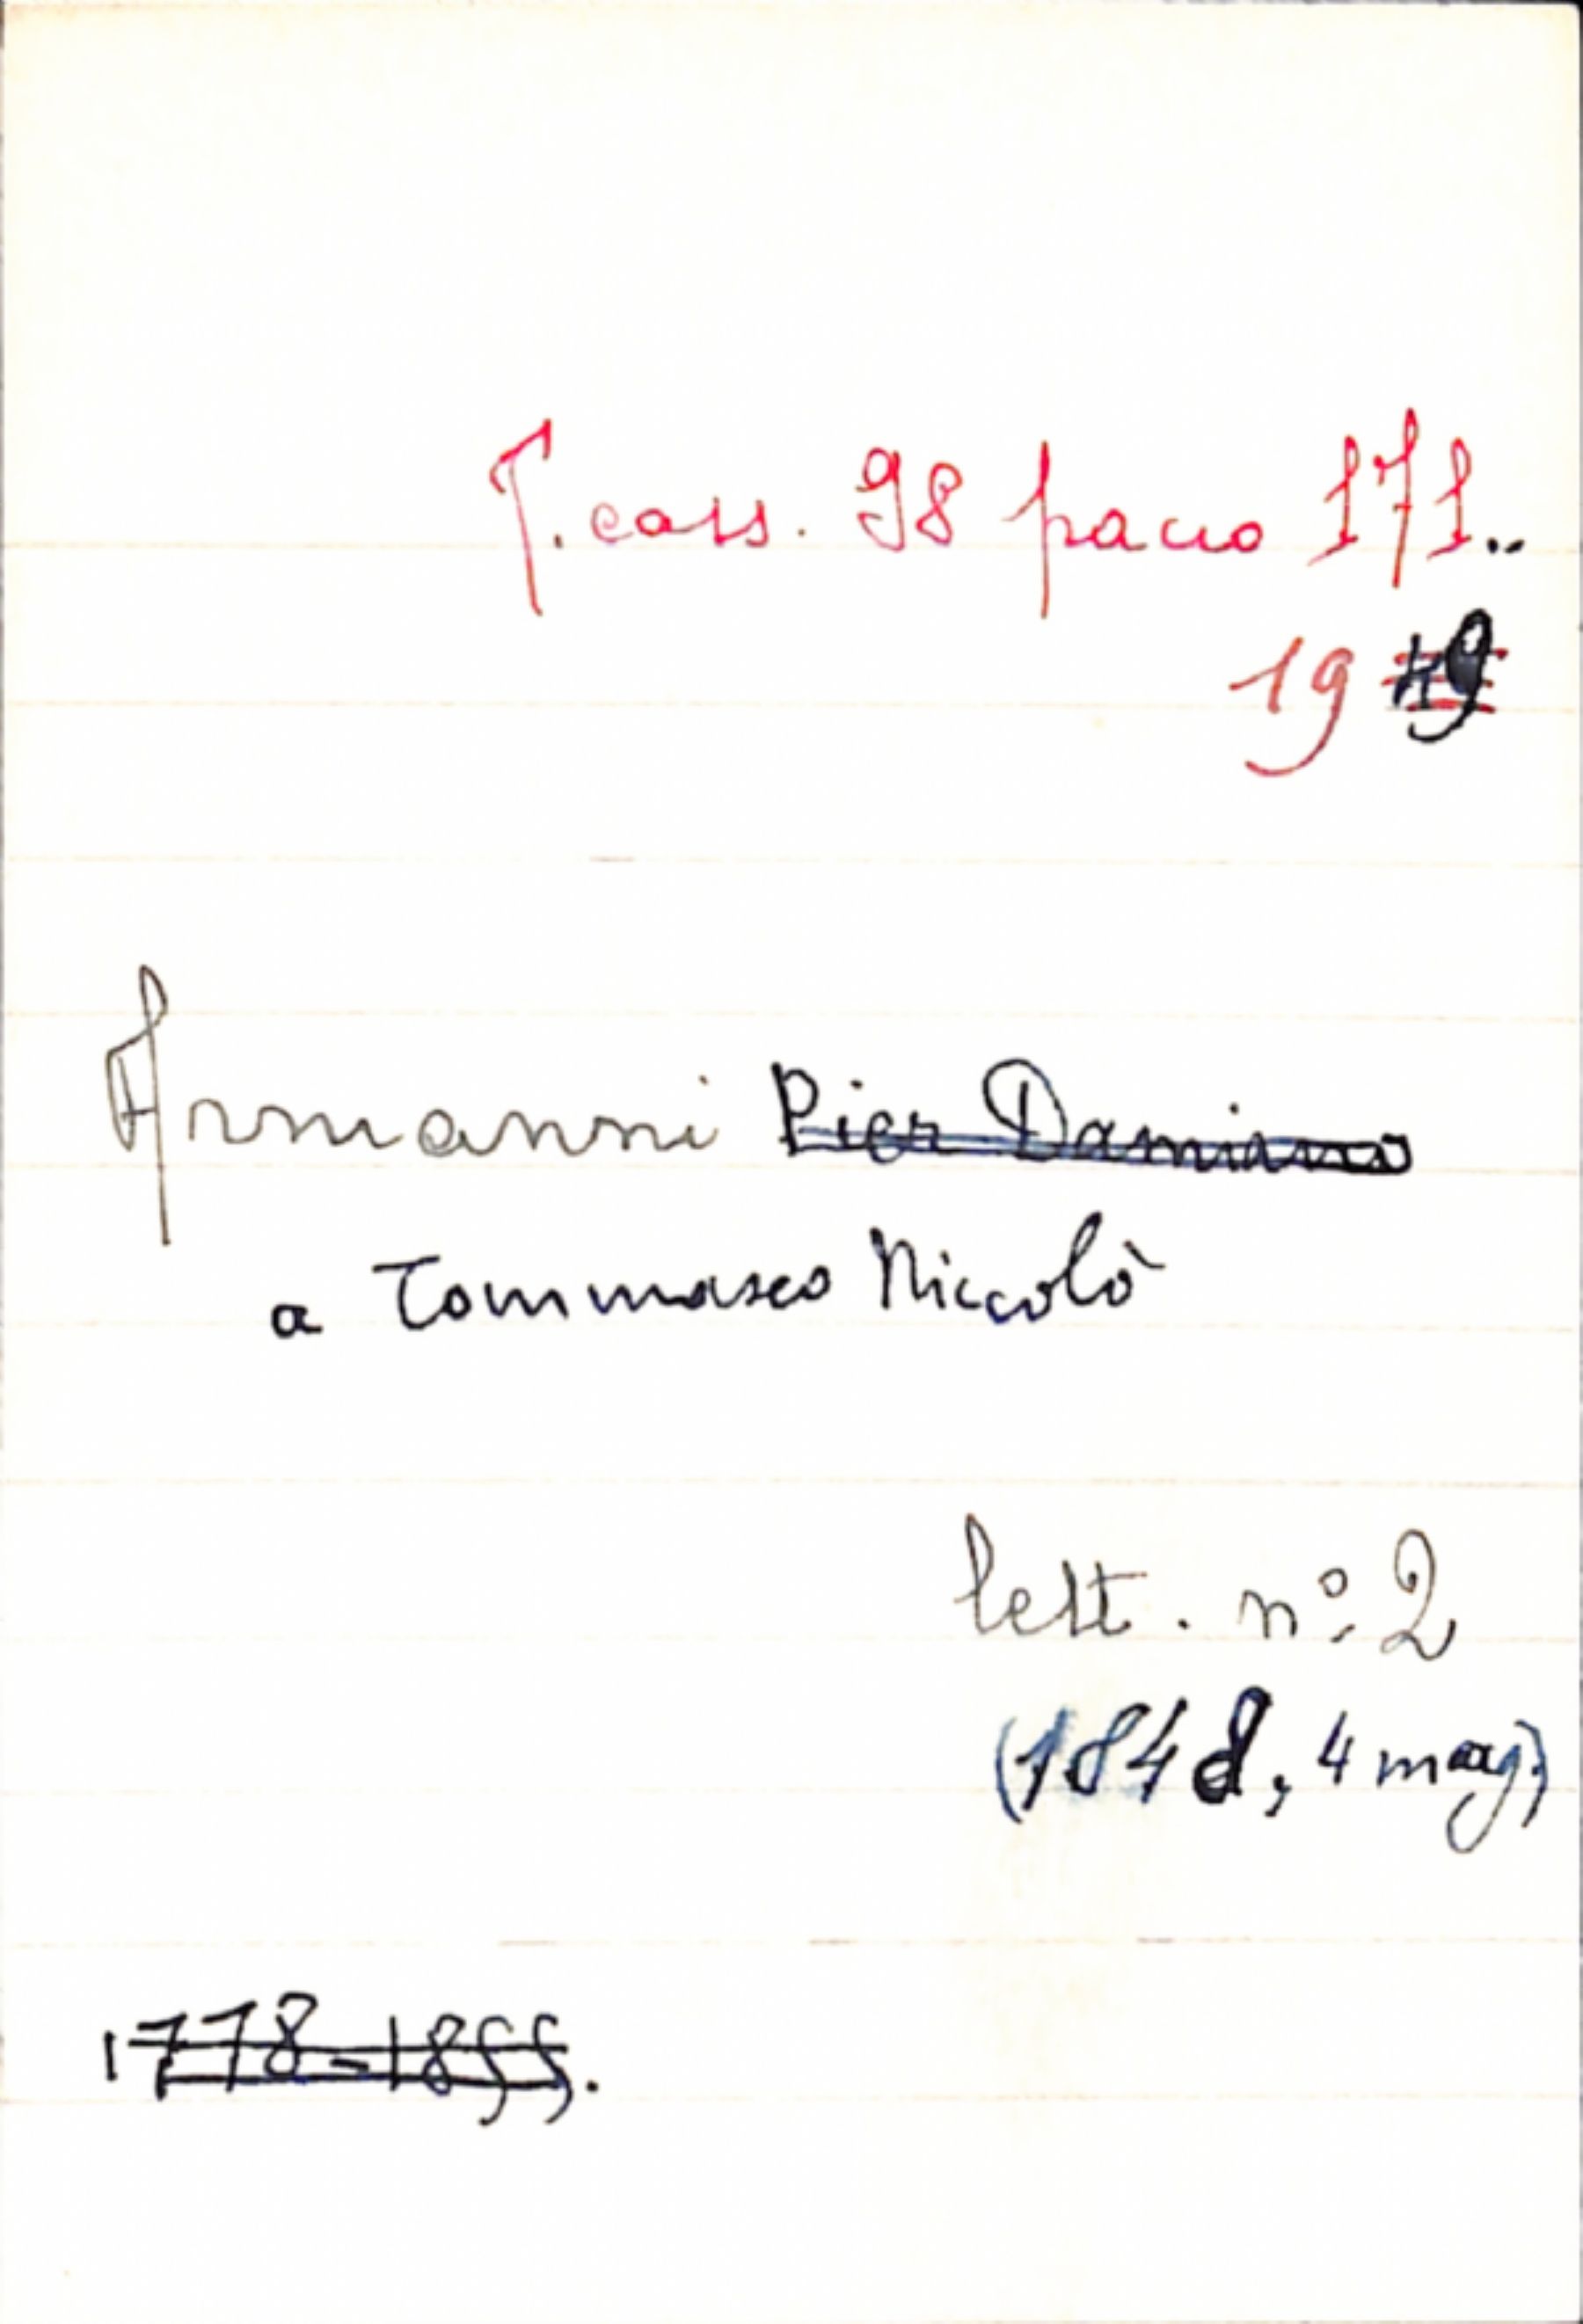 T. cass. 98 pacco 171..
19
Armanni Pier Damiano
a Tommaseo Niccolò
lett. nº 2
(1848, 4 mag.)
1778-1855.